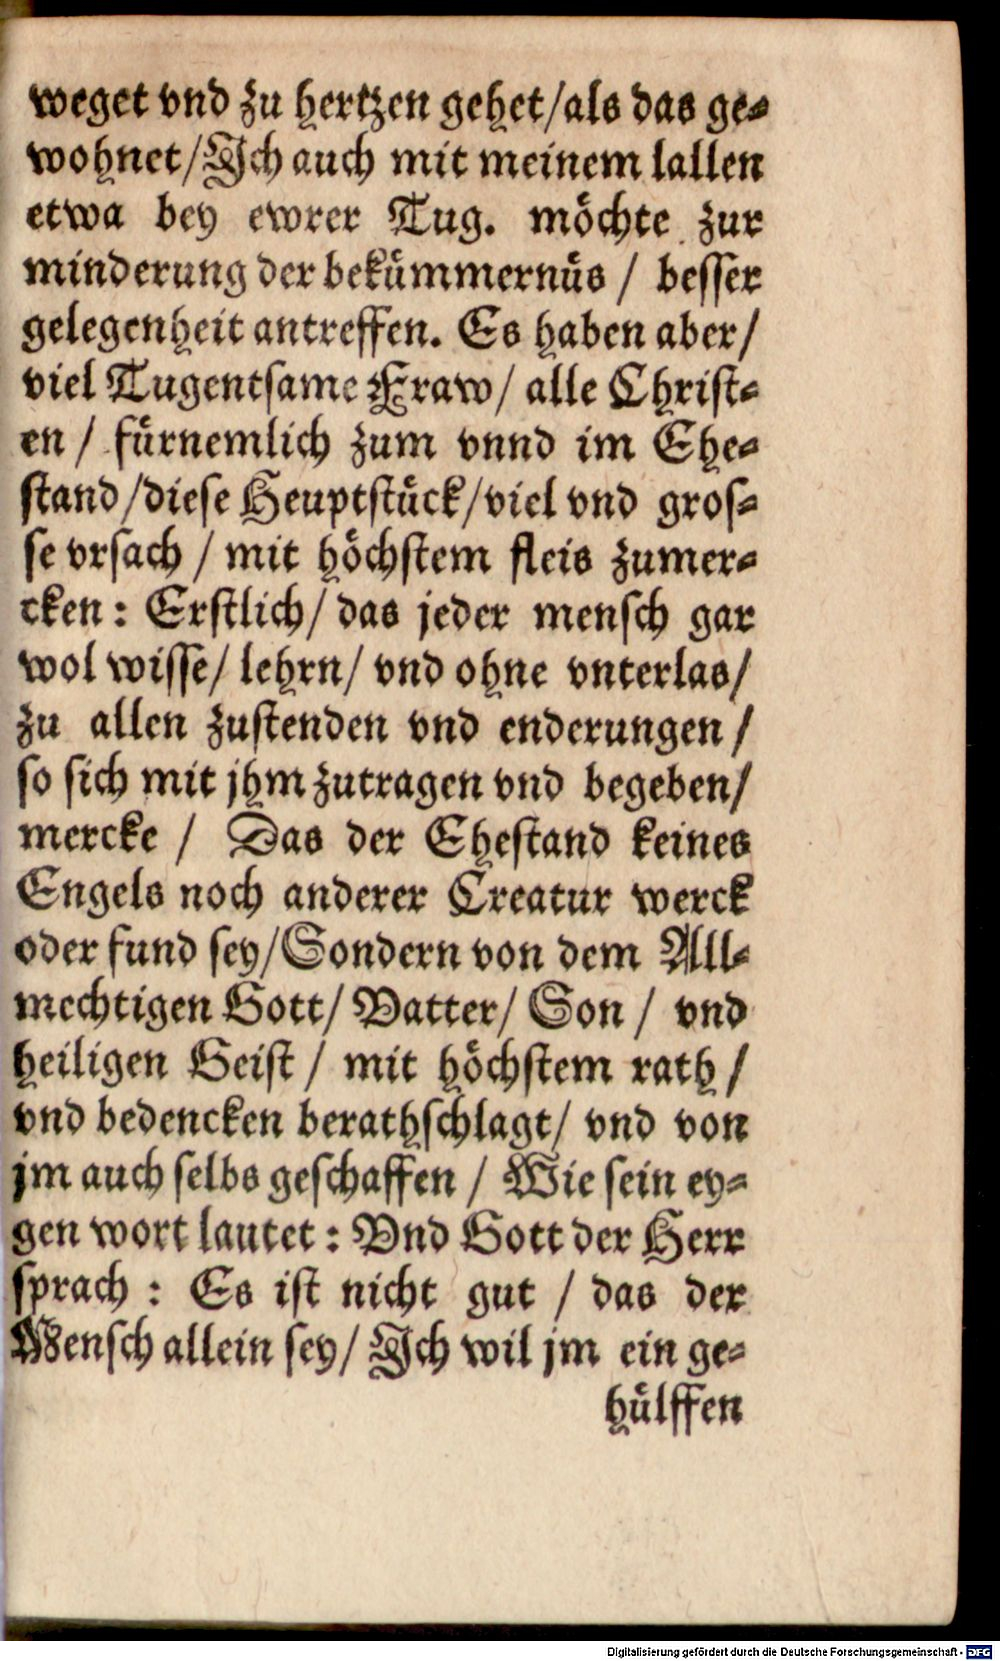 weget vnd zu hertzen gehet/als das ge-
wohnet/Ich auch mit meinem lallen
etwa bey ewrer Tug. möchte zur
minderung der bekümmernüs / besser
gelegenheit antreffen. Es haben aber/
viel Tugentsame Fraw/ alle Christ-
en / fürnemlich zum vnnd im Ehe-
stand/diese Heuptstück/viel vnd gros-
se vrsach / mit höchstem fleis zumer-
cken: Erstlich/ das jeder mensch gar
wol wisse/ lehrn/ vnd ohne vnterlas/
zu allen zustenden vnd enderungen /
so sich mit jhm zutragen vnd begeben/
mercke / Das der Ehestand keines
Engels noch anderer Creatur werck
oder fund sey/Sondern von dem All-
mechtigen Gott/ Vatter/ Son / vnd
heiligen Geist / mit höchstem rath /
vnd bedencken berathschlagt/ vnd von
jm auch selbs geschaffen / Wie sein ey-
gen wort lautet: Vnd Gott der Herr
sprach : Es ist nicht gut / das der
Mensch allein sey/ Ich wil jm ein ge-
hülffen
Digitalisierung gefördert durch die Deutsche Forschungsgemeinschaft - DFG